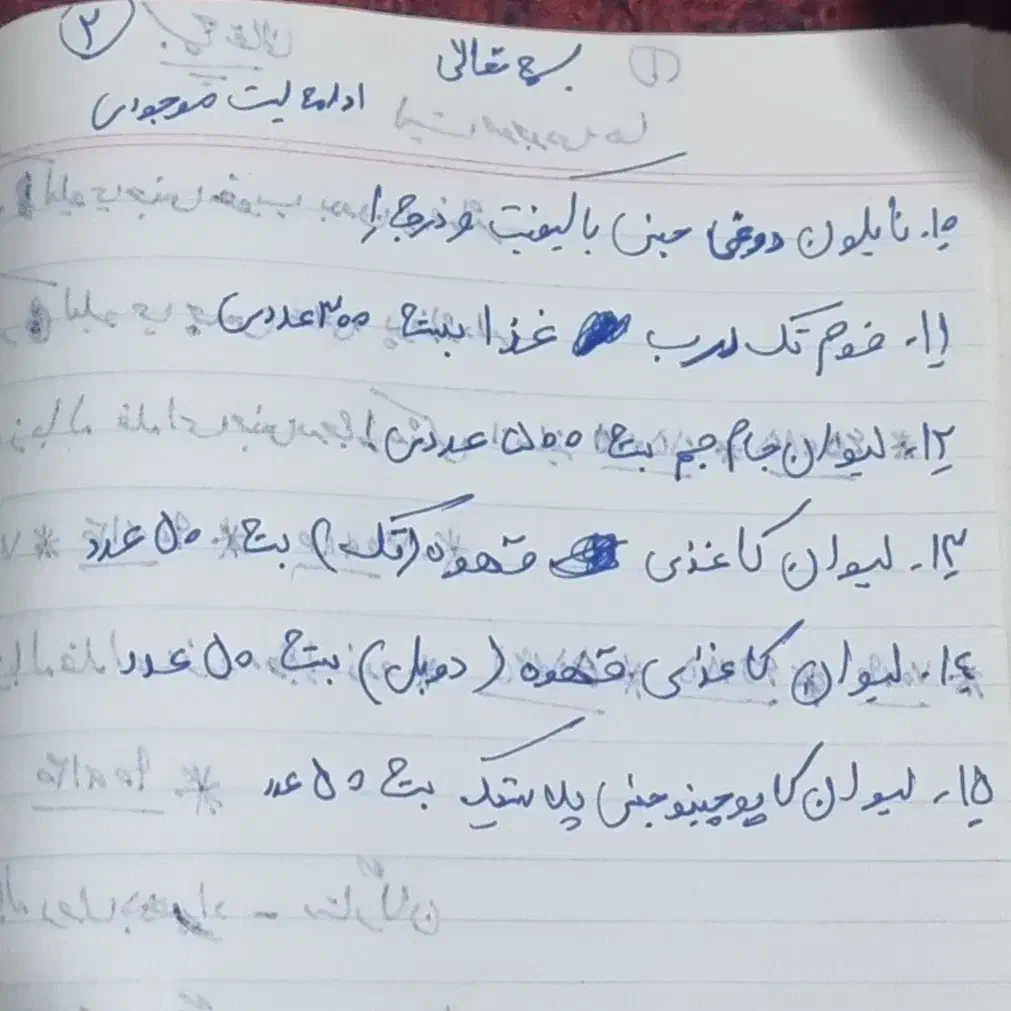 ۲
بسمه تعالی
ادامه لیست موجودی
۱۰. نایلون دوغی جنس با کیفیت و درجه ۱
۱۱. فوم تک درب غذا بسته ۲۰۰ عددی
۱۲. لیوان جام جم بسته ۵۰۰ عددی
۱۳. لیوان کاغذی قهوه (تک) بسته ۵۰ عدد
۱۴. لیوان کاغذی قهوه (دوبل) بسته ۵۰ عدد
۱۵. لیوان کاپوچینو جنس پلاستیک بسته ۵۰ عدد